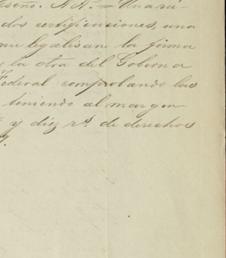 diseño. N.N. = Una rú-
dos certificaciones, una
que legalisan la firma
y la otra del Goberna
Federal comprobando las
teniendo al margen
y diez r.s de derechos